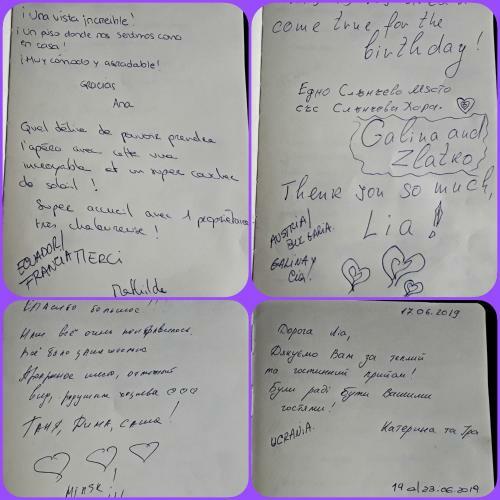 ¡Una vista increíble!
¡Un piso donde nos sentimos como
en casa!
¡Muy cómodo y agradable!
GRACIAS
Ana
Quel délice de pouvoir prendre
l'apéro avec cette vue
incroyable et un super coucher
de soleil !
Super accueil avec 1 propriétaire
très chaleureuse !
ECUADOR/
FRANCIA
MERCI
Mathilde
come true for the
birthday!
Едно Слънчево място
със Слънчева Хора.
Galina and
Zlatko
Thank you so much,
Lia!
AUSTRIA/
BULGARIA.
GALINA Y
CIA!
Спасибо большое!!!
Нам всё очень понравилось.
Всё было
место, отличный
вид, радушная хозяева
Таня, Дима, Саша!
Minsk!!!
17.06.2019
Дорога Lia,
Дякуємо Вам за теплий
та гостинний прийом!
Були раді бути Вашими
гостями!
UCRANIA.
Катерина та Іра
23.06.2019